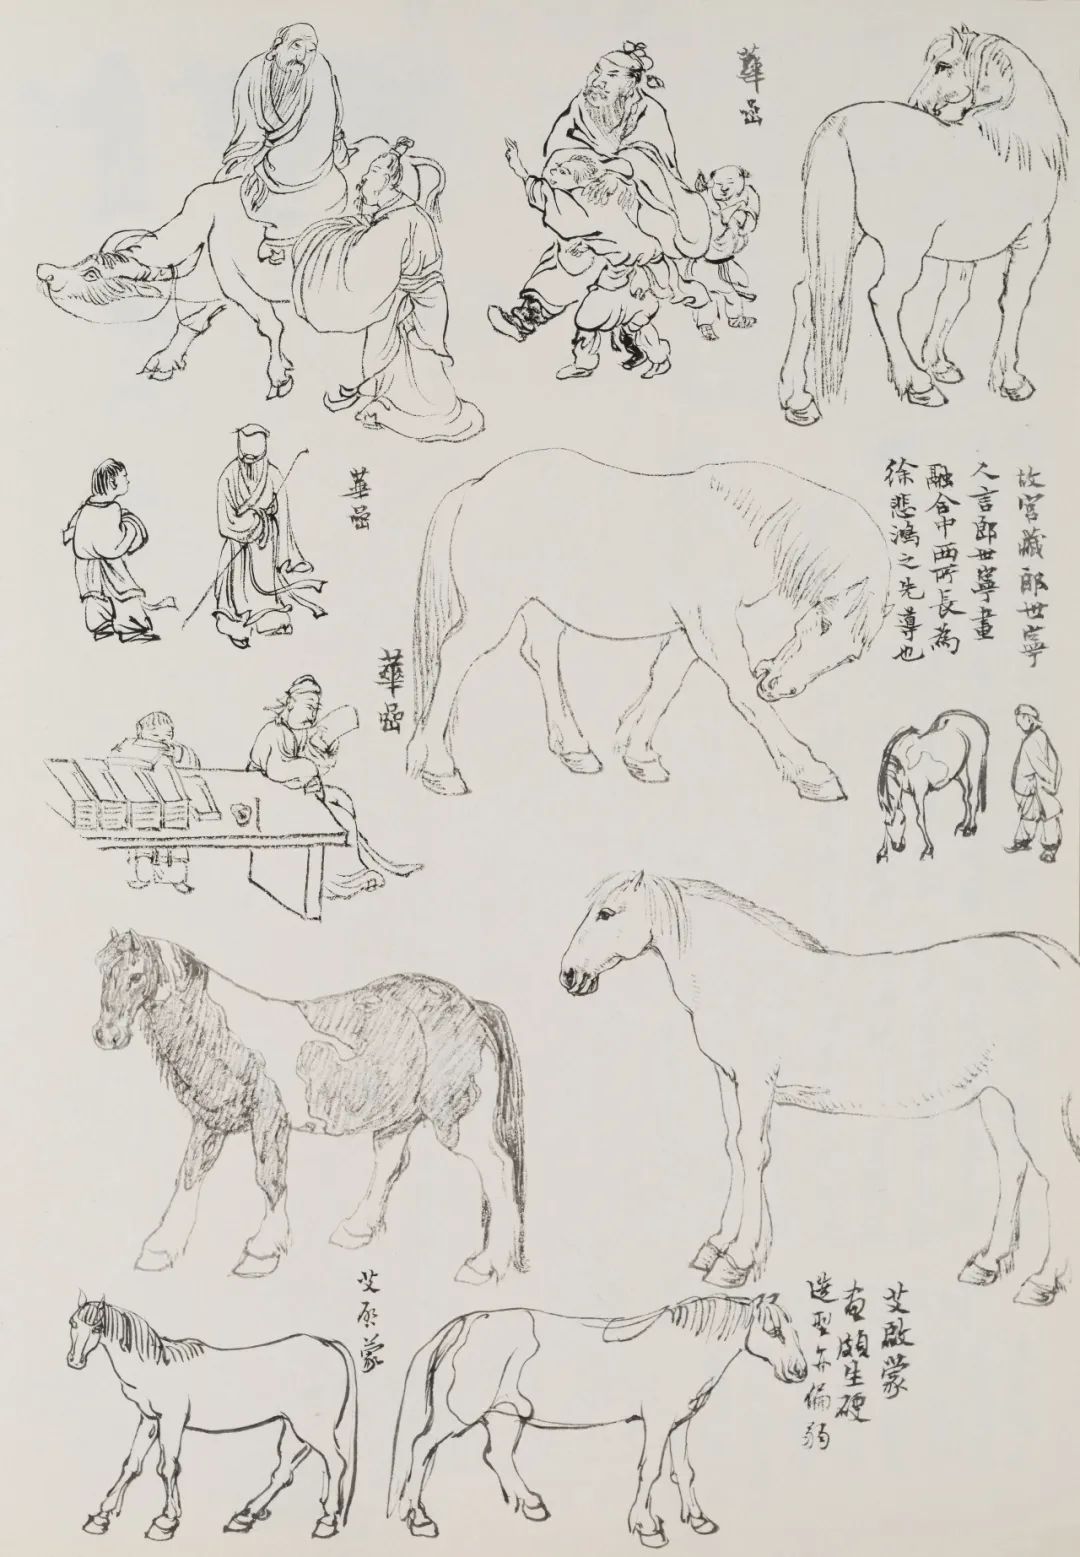 華喦
故宮藏郎世寧
人言郎世寧畫
融合中西所長為
徐悲鴻之先導也
華喦
華喦
艾启蒙
艾啟蒙
画頗生硬
造型亦偏弱